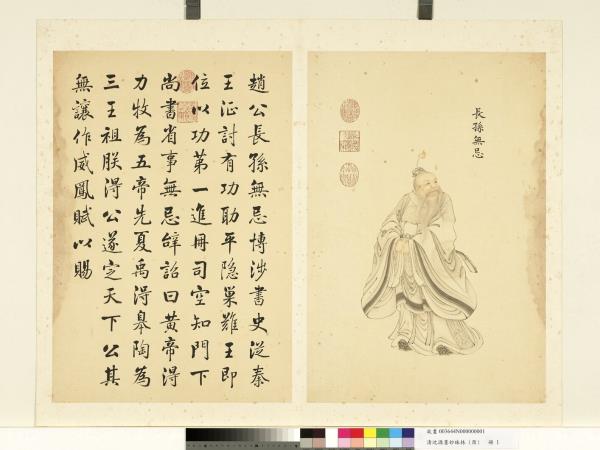 長孫無忌
趙公長孫無忌博涉書史從秦
王征討有功助平隐巢難王即
位以功第一進冊司空知門下
尚書省事無忌辭詔曰黃帝得
力牧為五帝先夏禹得皋陶為
三王祖朕得公遂定天下公其
無讓作威鳳賦以賜
故畫 003644N000000001
墨妙珠林（酉） 冊 1